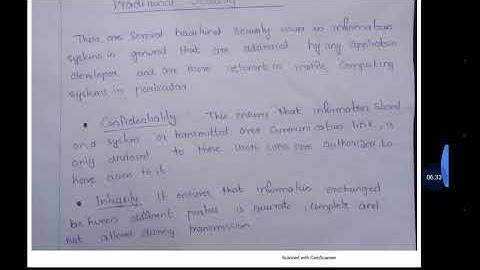 Traditional Security
There are several traditional security issues in information
systems in general that are addressed by any application
developer and are more relevant in mobile computing
systems in particular
• Confidentiality This ensures that information stored
on a system or transmitted over communication link, is
only disclosed to those users who are authorized to
have access to it.
• Integrity It ensures that information exchanged
between different parties is accurate, complete and
not altered during transmission
06:32
Scanned with CamScanner